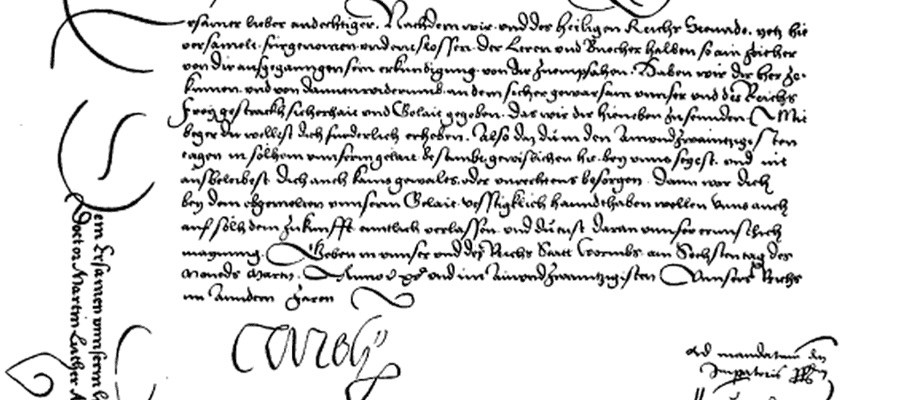 ersamer lieber andechtiger. Nachdem wir und der heiligen Reichs Stennde. yetz hie
versamelt. fürgenomen und entslossen. der Leren und Buecher halben so ain zeither
von dir ausgegangen sein erkündigung von dir zuempfahen. Haben wir dir her ze
kumen. und von dannen widerumb. an dem sicher gewarsam unnser und des Reichs
Freyg gestrackh sicherhait und Glait gegeben. das wir dir hieneben zusennden Mit
beger du wellest dich furderlich erheben. Also das du in den Ainundzwaintzigisten
tagen in solhem unnserm glait bestimbt gewislichen hie bey unns seyest. und nit
ausbeleibest Dich auch kains gewalts oder unrechtens besorgen. Dann wir dich
bey dem obgemelten unnserm Glait vesstigklich hanndthaben wellen Unns auch
auf solh dein Zukunfft enntlich verlassen. und du tust daran unnser ernnstlich
maynung. Geben in unnser und des Reichs Statt Wormbs. am Sechsten tag des
Moneds Marcy. Anno &c. xvc und im ainundzwaintzigisten Unnsers Reichs
im Anndern Jaren
Carolus
Ad mandatum dni
Imperatoris ppm
em Ersamen unnserm
Doctor Martin Luther